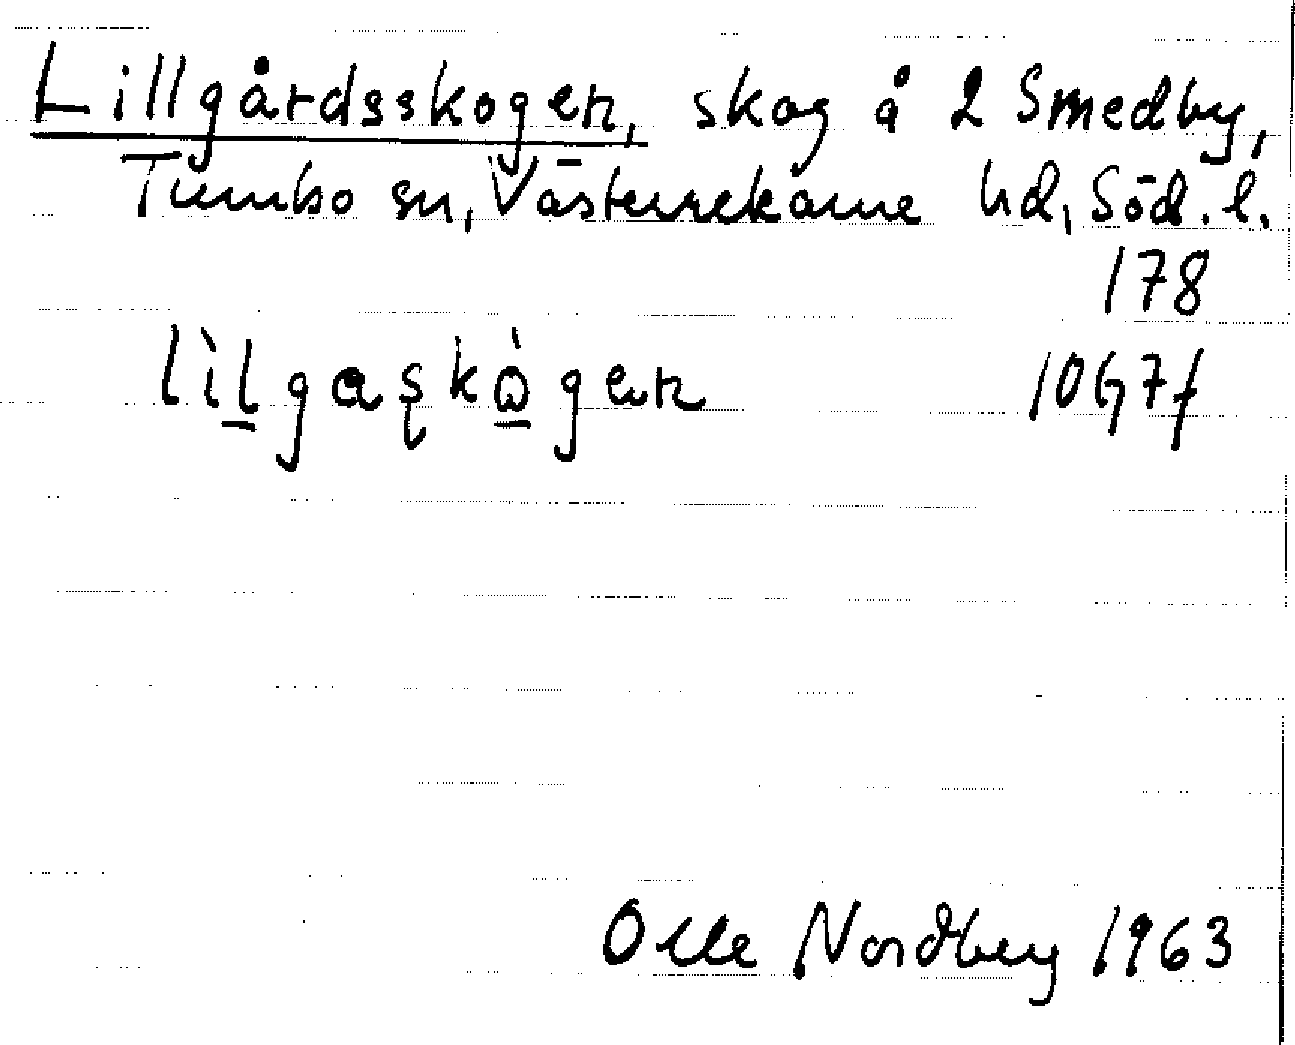 Lillgårdsskogen, skog å 2 Smedby,
Tumbo sn, Västerrekarne hd, Söd. l.
178
lìl̲gaʂkò̲gen 10G7f
Olle Nordberg 1963